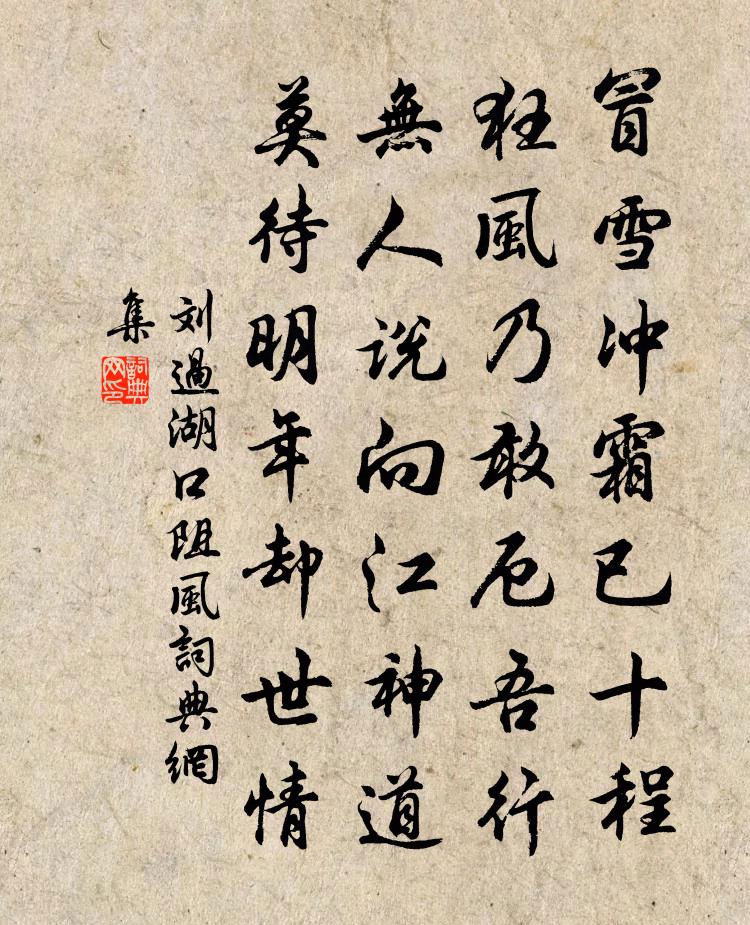 冒雪沖霜已十程
狂風乃敢厄吾行
無人説向江神道
莫待明年却世情
刘過湖口阻風詞典網
集
詞典
网印